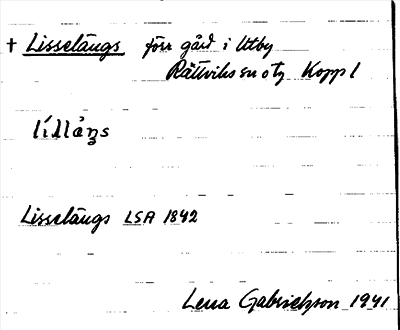 † Lisselängs förr gård i Utby
Rättviks sn otg Kopp l
Lisselängs LSA 1842
Lena Gabrielsson 1941